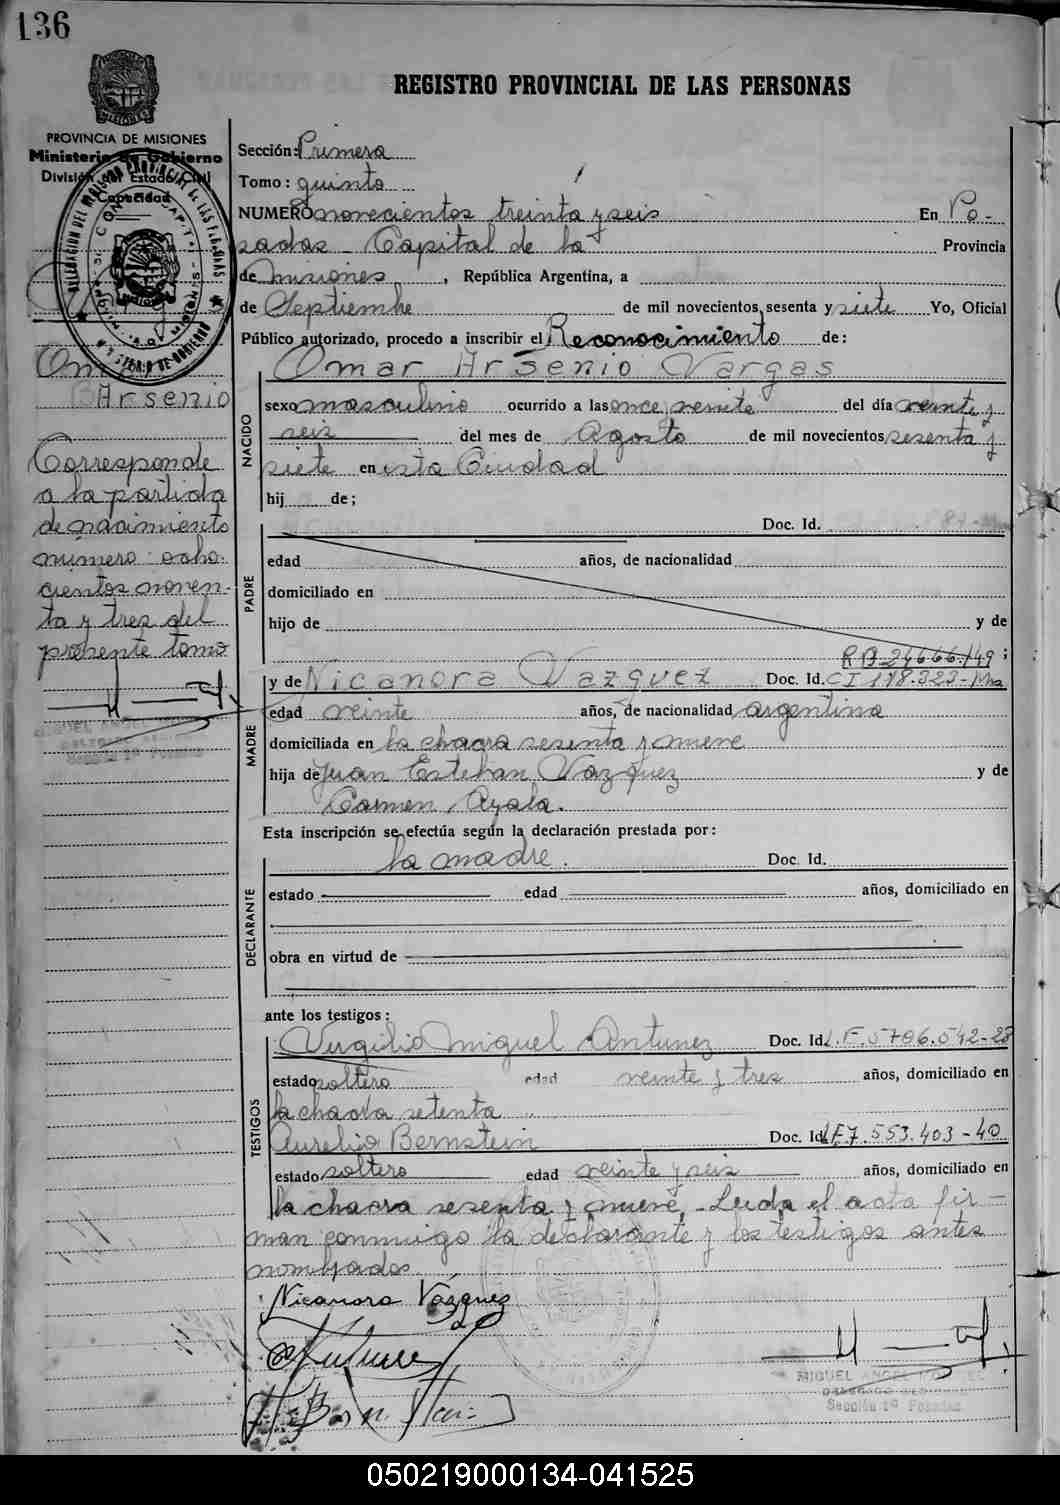 136
REGISTRO PROVINCIAL DE LAS PERSONAS
PROVINCIA DE MISIONES
Ministerio de Gobierno
División del Estado Civil y
Capacidad
Omar
Arsenio
Corresponde
a la partida
de nacimiento
número ocho-
cientos noven-
ta y tres del
presente tomo
Sección: Primera
Tomo: quinto
NUMERO novecientos treinta y seis En Po-
sadas - Capital de la Provincia
de Misiones, República Argentina, a
de Septiembre de mil novecientos sesenta y siete Yo, Oficial
Público autorizado, procedo a inscribir el Reconocimiento de:
Omar Arsenio Vargas
NACIDO
sexo masculino ocurrido a las once, veinte del día veinte y
seis del mes de Agosto de mil novecientos sesenta y
siete en esta Ciudad
hij de;
Doc. Id.
PADRE
edad años, de nacionalidad
domiciliado en
hijo de y de
;
y de Nicanora Vazquez Doc. Id. CI 118.323-Mns
MADRE
edad veinte años, de nacionalidad argentina
domiciliada en la chacra sesenta y nueve
hija de Juan Esteban Vazquez y de
Carmen Ayala.
Esta inscripción se efectúa según la declaración prestada por:
la madre. Doc. Id.
DECLARANTE
estado edad años, domiciliado en
obra en virtud de
ante los testigos:
Virgilio Miguel Antunez Doc. Id. L.E. 5706.542-28
TESTIGOS
estado soltero edad veinte y tres años, domiciliado en
la chacra setenta
Aurelio Bernstein Doc. Id. LE 7.553.403-40
estado soltero edad veinte y seis años, domiciliado en
la chacra sesenta y nueve - Leída el acta fir-
man conmigo la declarante y los testigos antes
nombrados
Nicanora Vázquez
MIGUEL ANGEL
Sección 1º Posadas
050219000134-041525